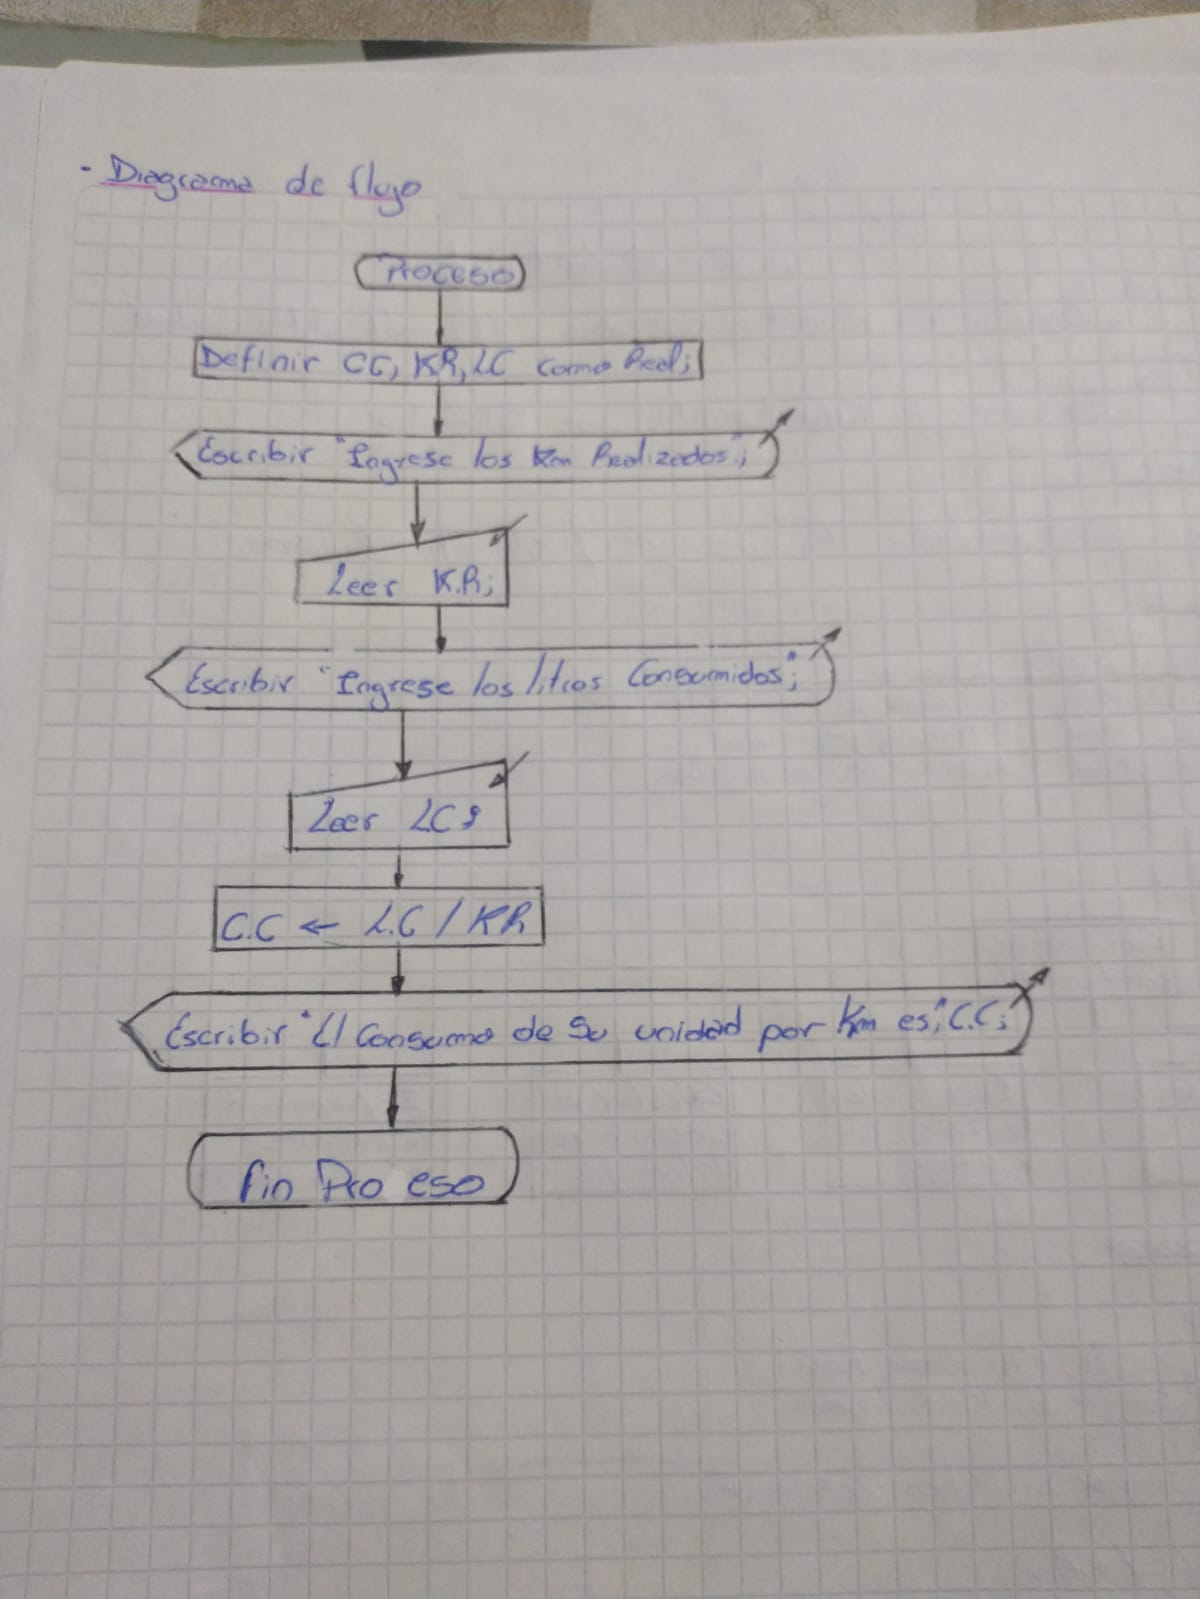 - Diagrama de flujo
Proceso
Definir CC, KR, LC como Real;
Escribir "Ingrese los Km Realizados";
Leer K.R;
Escribir "Ingrese los litros Consumidos";
Leer LC;
C.C ← L.C / KR
Escribir "El Consumo de Su unidad por Km es;" C.C;
fin Proceso